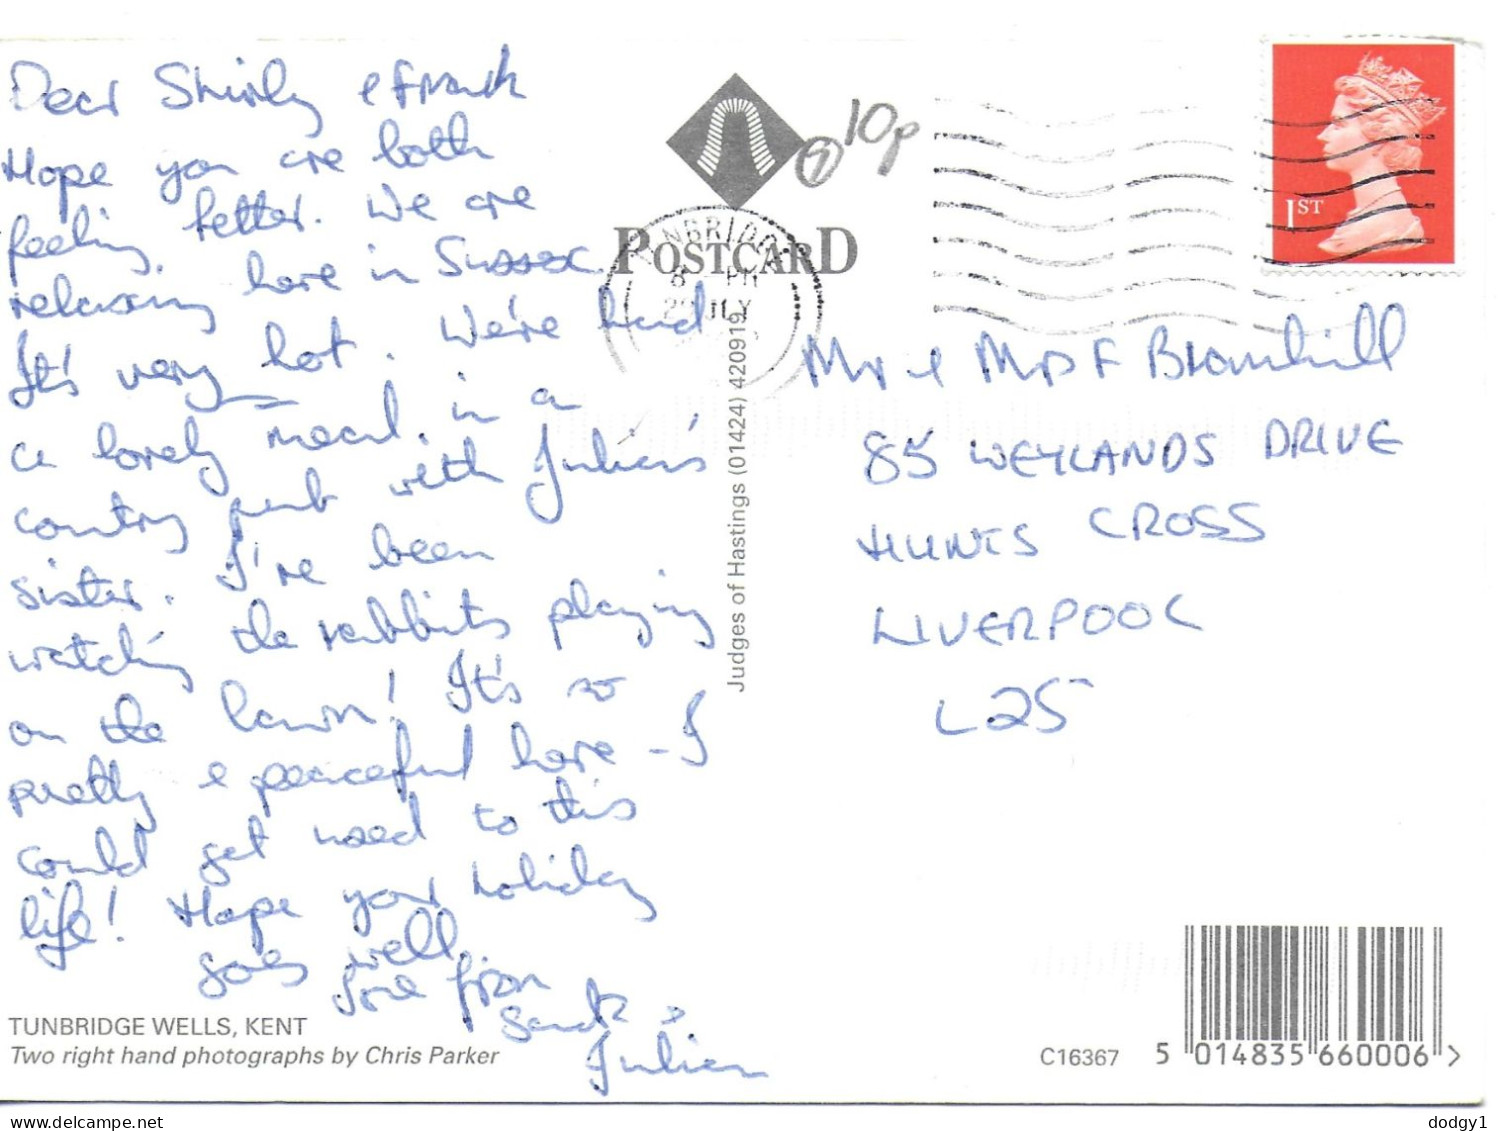 Dear Shirly & Frank
Hope you are both
feeling better. We are
relaxing here in Sussex.
It's very hot. We've had
a lovely meal in a
country pub with Julien's
sister. I've been
watching the rabbits playing
on the lawn! It's so
pretty & peaceful here - I
could get used to this
life! Hope your holiday
goes well
love from
Julien
TUNBRIDGE WELLS, KENT
Two right hand photographs by Chris Parker
POSTCARD
TUNBRIDGE
PM
JLY
7 10p
Judges of Hastings (01424) 420919
1ST
Mr & Mrs F Bromhill
85 WEYLANDS DRIVE
HUNTS CROSS
LIVERPOOL
L25
C16367
5 014835 660006 >
www.delcampe.net
dodgy1